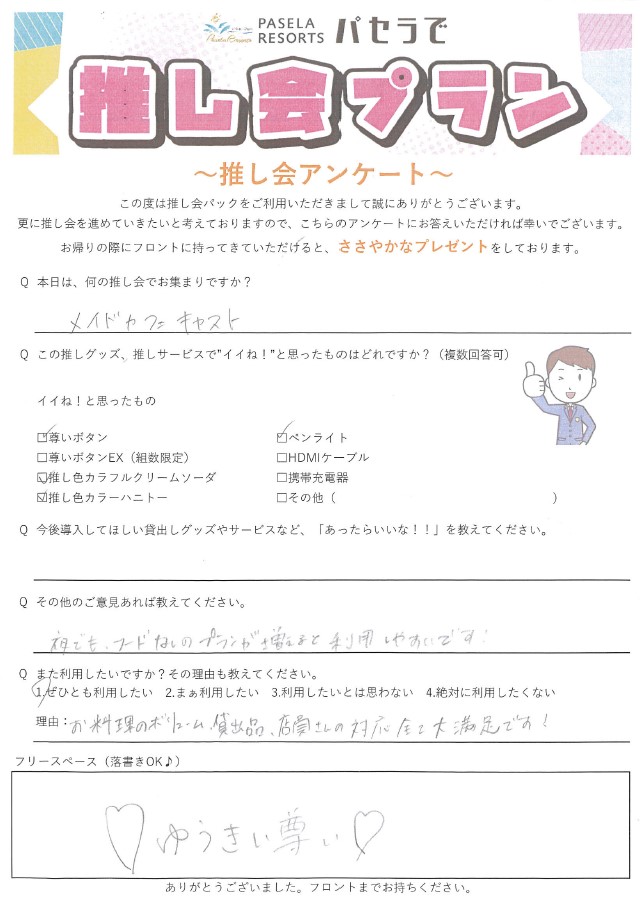 Pasela Resorts PASELA RESORTS パセラで
推し会プラン
～推し会アンケート～
この度は推し会パックをご利用いただきまして誠にありがとうございます。
更に推し会を進めていきたいと考えておりますので、こちらのアンケートにお答えいただければ幸いでございます。
お帰りの際にフロントに持ってきていただけると、ささやかなプレゼントをしております。
Q 本日は、何の推し会でお集まりですか？
メイドカフェ キャスト
Q この推しグッズ、推しサービスで"イイね！"と思ったものはどれですか？（複数回答可）
イイね！と思ったもの
☑尊いボタン ☑ペンライト
□尊いボタンEX（組数限定） □HDMIケーブル
☑推し色カラフルクリームソーダ □携帯充電器
☑推し色カラーハニトー □その他（ ）
Q 今後導入してほしい貸出しグッズやサービスなど、「あったらいいな！！」を教えてください。
Q その他のご意見あれば教えてください。
夜でも、フードなしのプランが増えると利用しやすいです！
Q また利用したいですか？その理由も教えてください。
1.ぜひとも利用したい 2.まぁ利用したい 3.利用したいとは思わない 4.絶対に利用したくない
理由：お料理のボリューム、貸出品、店員さんの対応全て大満足です！
フリースペース（落書きOK♪）
♡ゆうきぃ尊い♡
ありがとうございました。フロントまでお持ちください。